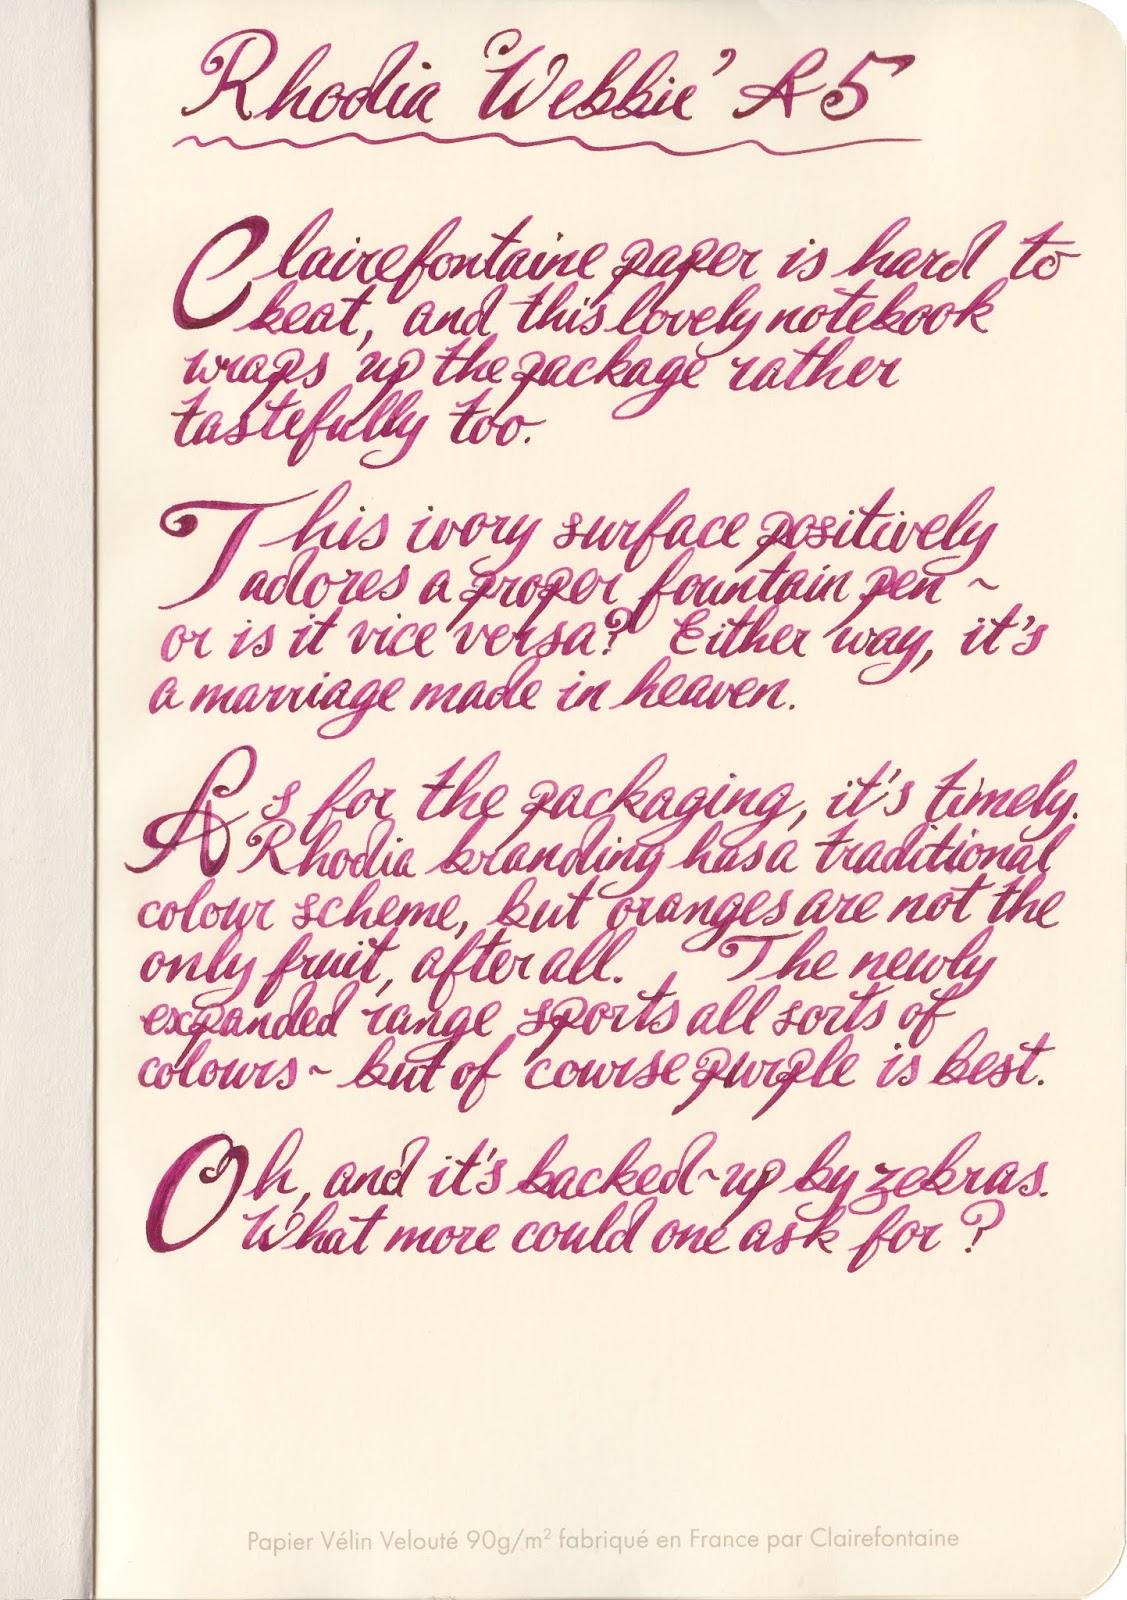 Rhodia 'Webbie' A5
Clairefontaine paper is hard to
beat, and this lovely notebook
wraps up the package rather
tastefully too.
This ivory surface positively
adores a proper fountain pen ~
or is it vice versa? Either way, it's
a marriage made in heaven.
As for the packaging, it's timely.
Rhodia branding has a traditional
colour scheme, but oranges are not the
only fruit, after all. The newly
expanded range sports all sorts of
colours ~ but of course purple is best.
Oh, and it's backed~up by zebras.
What more could one ask for?
Papier Vélin Velouté 90g/m² fabriqué en France par Clairefontaine